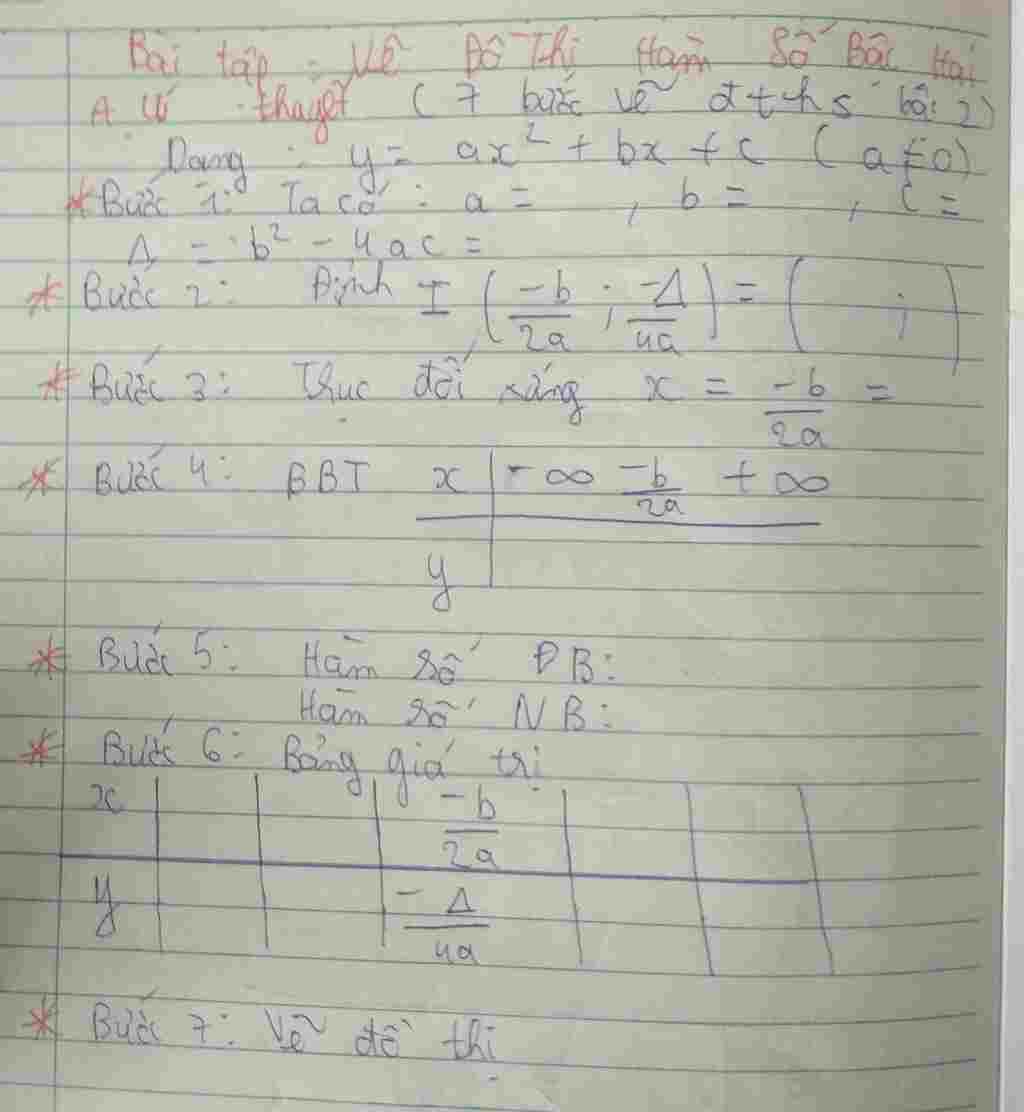 Bài tập : Vẽ Đồ Thị Hàm Số Bậc Hai
A Lí thuyết ( 7 bước vẽ đths bậc 2)
Dạng : y = ax² + bx + c ( a ≠ 0)
* Bước 1: Ta có : a = , b = , c =
Δ = b² - 4ac =
* Bước 2: Đỉnh I ( -b/2a ; -Δ/4a ) = ( ; )
* Bước 3: Trục đối xứng x = -b/2a =
* Bước 4: BBT x | -∞ -b/2a +∞
y
* Bước 5: Hàm số ĐB:
Hàm số NB:
* Bước 6: Bảng giá trị
x | | | -b/2a | | |
y | | | -Δ/4a | | |
* Bước 7: Vẽ đồ thị